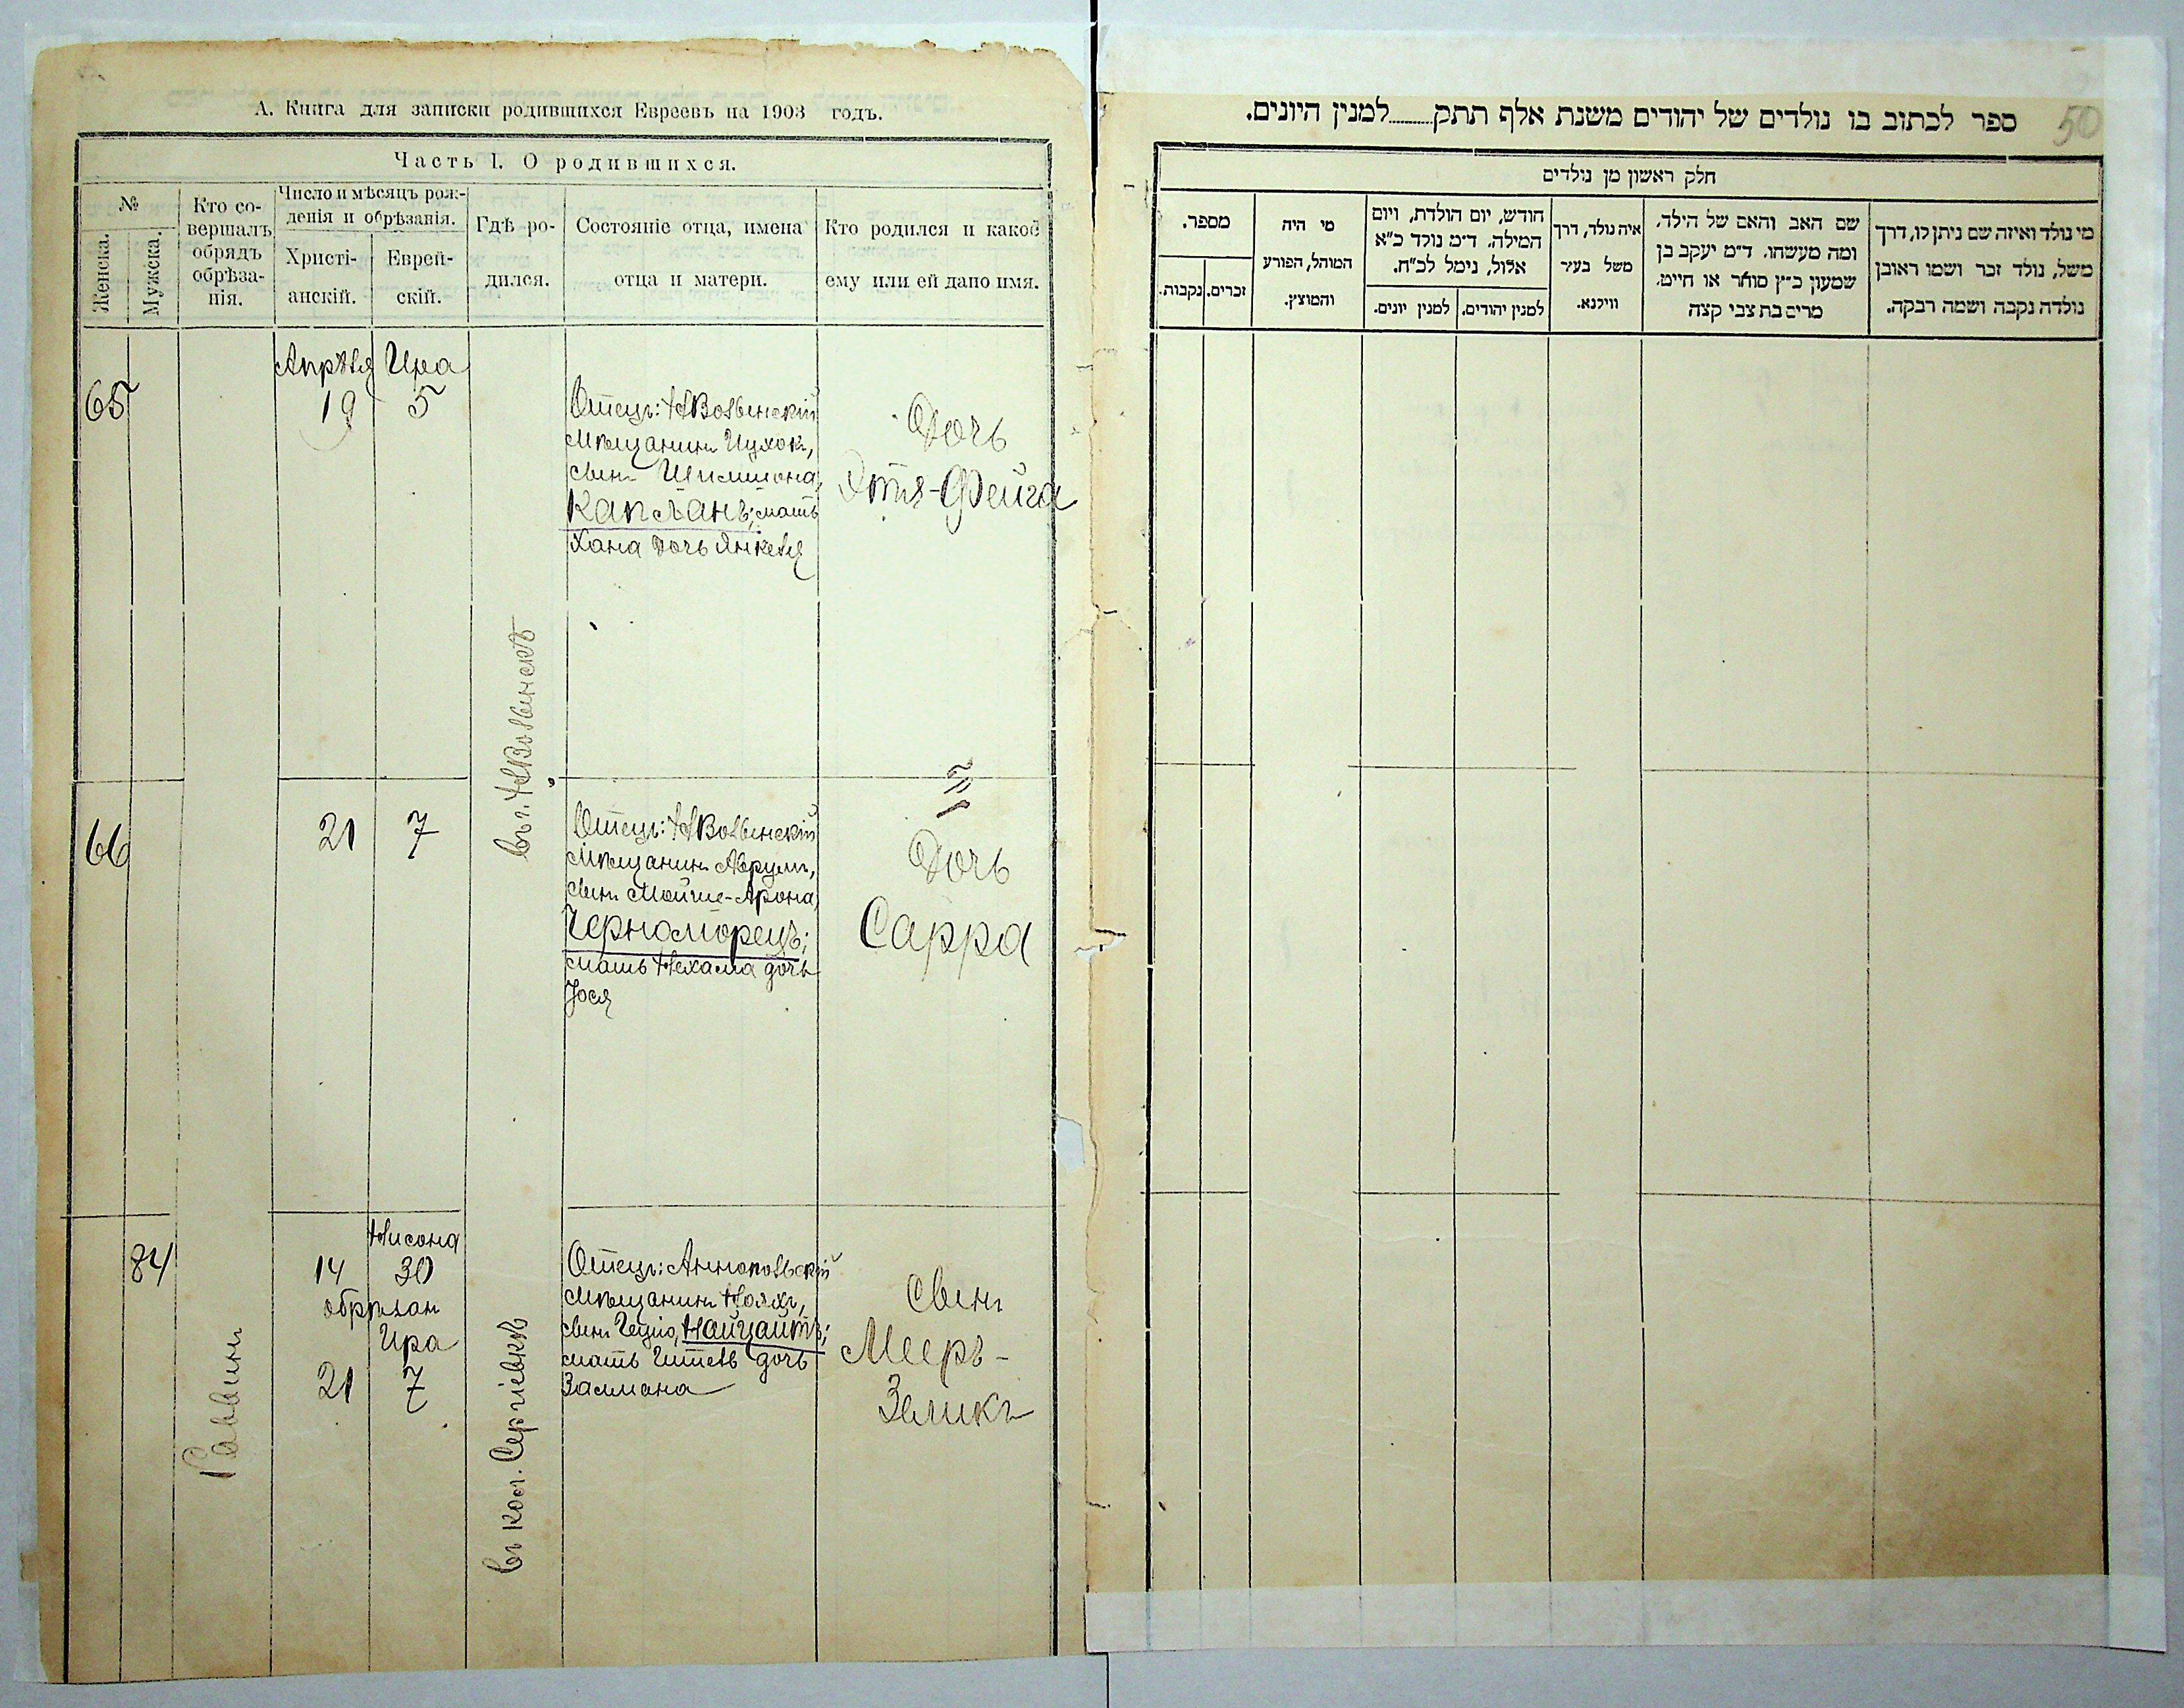 А. Книга для записки родившихся Евреевъ на 1903 годъ.
Часть I. О родившихся.
№
Женска.
Мужска.
Кто со-
вершалъ
обрядъ
обрѣза-
нія.
Число и мѣсяцъ рож-
денія и обрѣзанія.
Христі-
анскій.
Еврей-
скій.
Гдѣ ро-
дился.
Состояніе отца, имена
отца и матери.
Кто родился и какое
ему или ей дано имя.
65
Апрѣля
19
Ира
5
въ г. НВолынскѣ
Отецъ: НВолынскій
мѣщанинъ Ицхокъ,
сынъ Шимшона,
Капланъ; мать
Хана дочь Янкеля
Дочь
Этя-Фейга
66
21
7
Отецъ: НВолынскій
мѣщанинъ Аврумъ,
сынъ Мойше-Арона,
Черноморецъ;
мать Нехама дочь
Іося
Дочь
Сарра
84
Раввинъ
Нисона
14 30
обрѣзан
Ира
21 7
въ кол. Сергіевкѣ
Отецъ: Аннопольскій
мѣщанинъ Нояхъ,
сынъ Найцайтъ;
мать дочь
Залмана
Сынъ
Мееръ-
Зеликъ
50
ספר לכתוב בו נולדים של יהודים משנת אלף תתק........למנין היונים.
חלק ראשון מן נולדים
מספר.
זכרים.
נקבות.
מי היה
המוהל, הפורע
והמוצץ.
חודש, יום הולדת, ויום
המילה. ד״מ נולד כ״א
אלול, נימל לכ״ח.
למנין יונים.
למנין יהודים.
איה נולד, דרך
משל בעיר
ווילנא.
שם האב והאם של הילד,
ומה מעשהו. ד״מ יעקב בן
שמעון כ״ץ סוחר או חייט,
מרים בת צבי קצה
מי נולד ואיזה שם ניתן לו, דרך
משל, נולד זכר ושמו ראובן
נולדה נקבה ושמה רבקה.